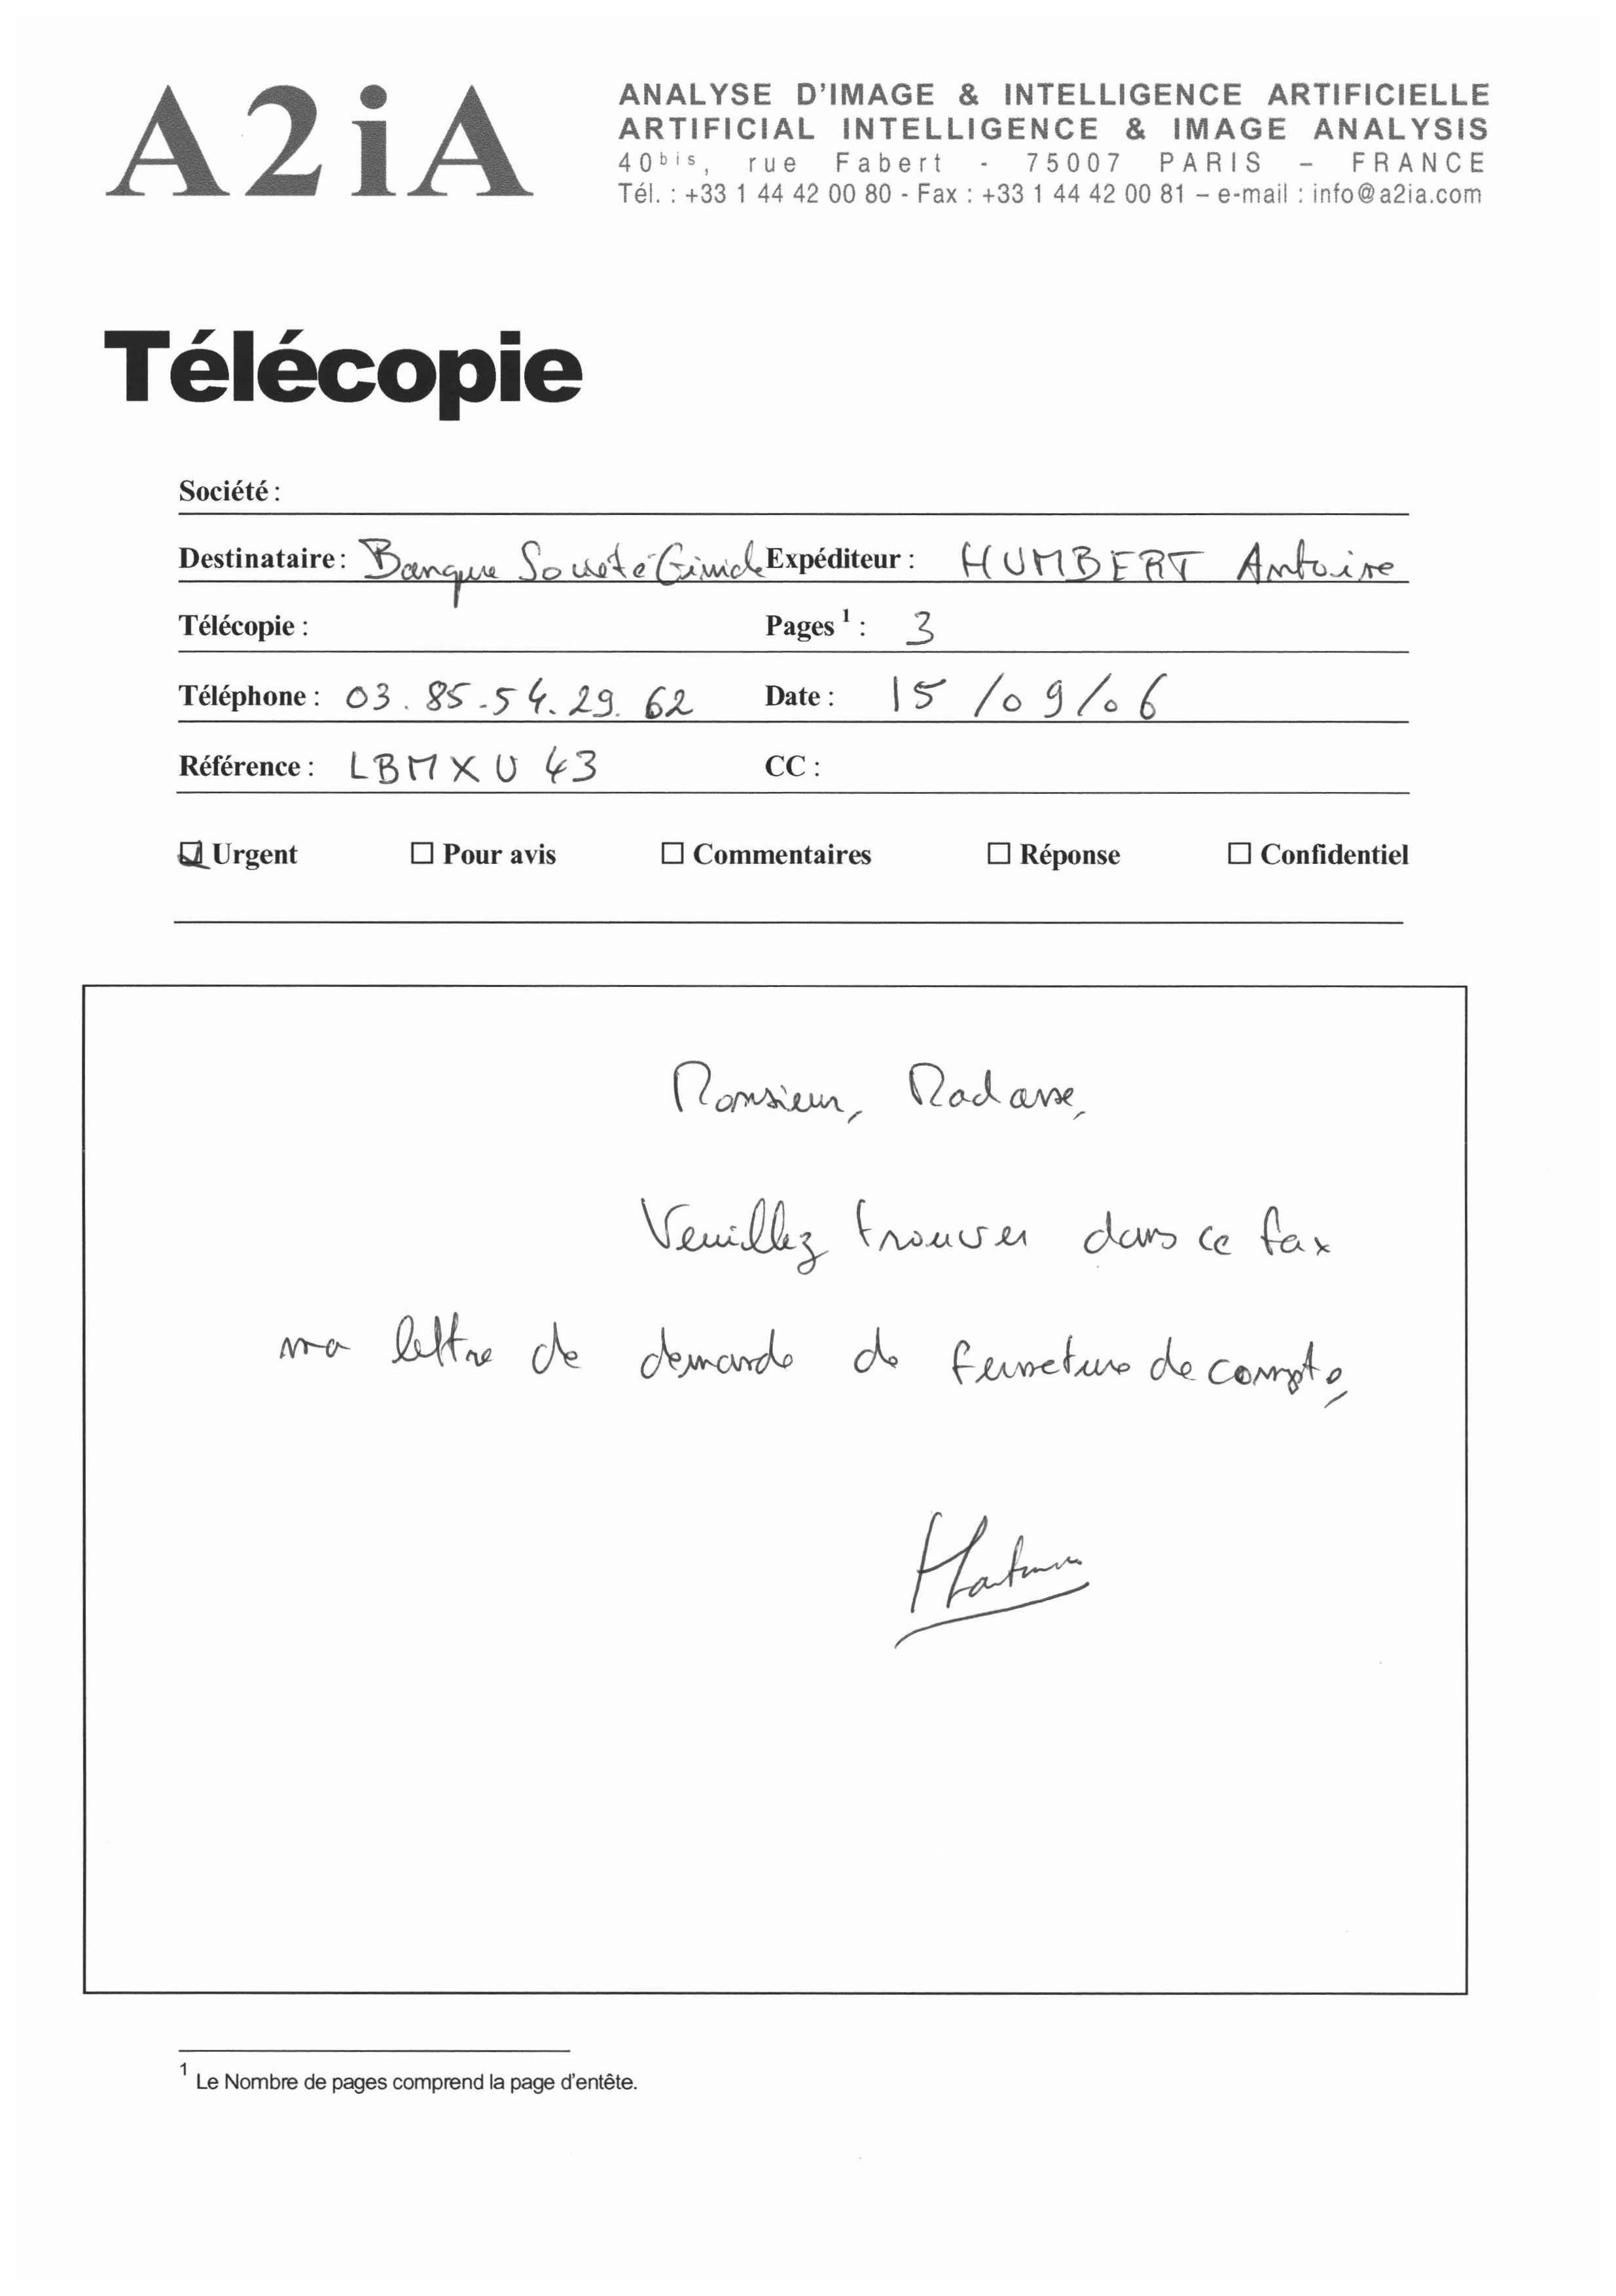 A2iA
ANALYSE D'IMAGE & INTELLIGENCE ARTIFICIELLE
ARTIFICIAL INTELLIGENCE & IMAGE ANALYSIS
40bis, rue Fabert - 75007 PARIS – FRANCE
Tél. : +33 1 44 42 00 80 - Fax : +33 1 44 42 00 81 – e-mail : info@a2ia.com
Télécopie
Société :
Destinataire : Banque Société Expéditeur : HUMBERT Antoine
Télécopie : Pages 1 : 3
Téléphone : 03.85.54.29.62 Date : 15/09/06
Référence : LBMXU43 CC :
Urgent Pour avis Commentaires Réponse Confidentiel
Monsieur, Madame,
Veuillez trouver dans ce fax
ma lettre de demande de fermeture de compte,
1 Le Nombre de pages comprend la page d'entête.